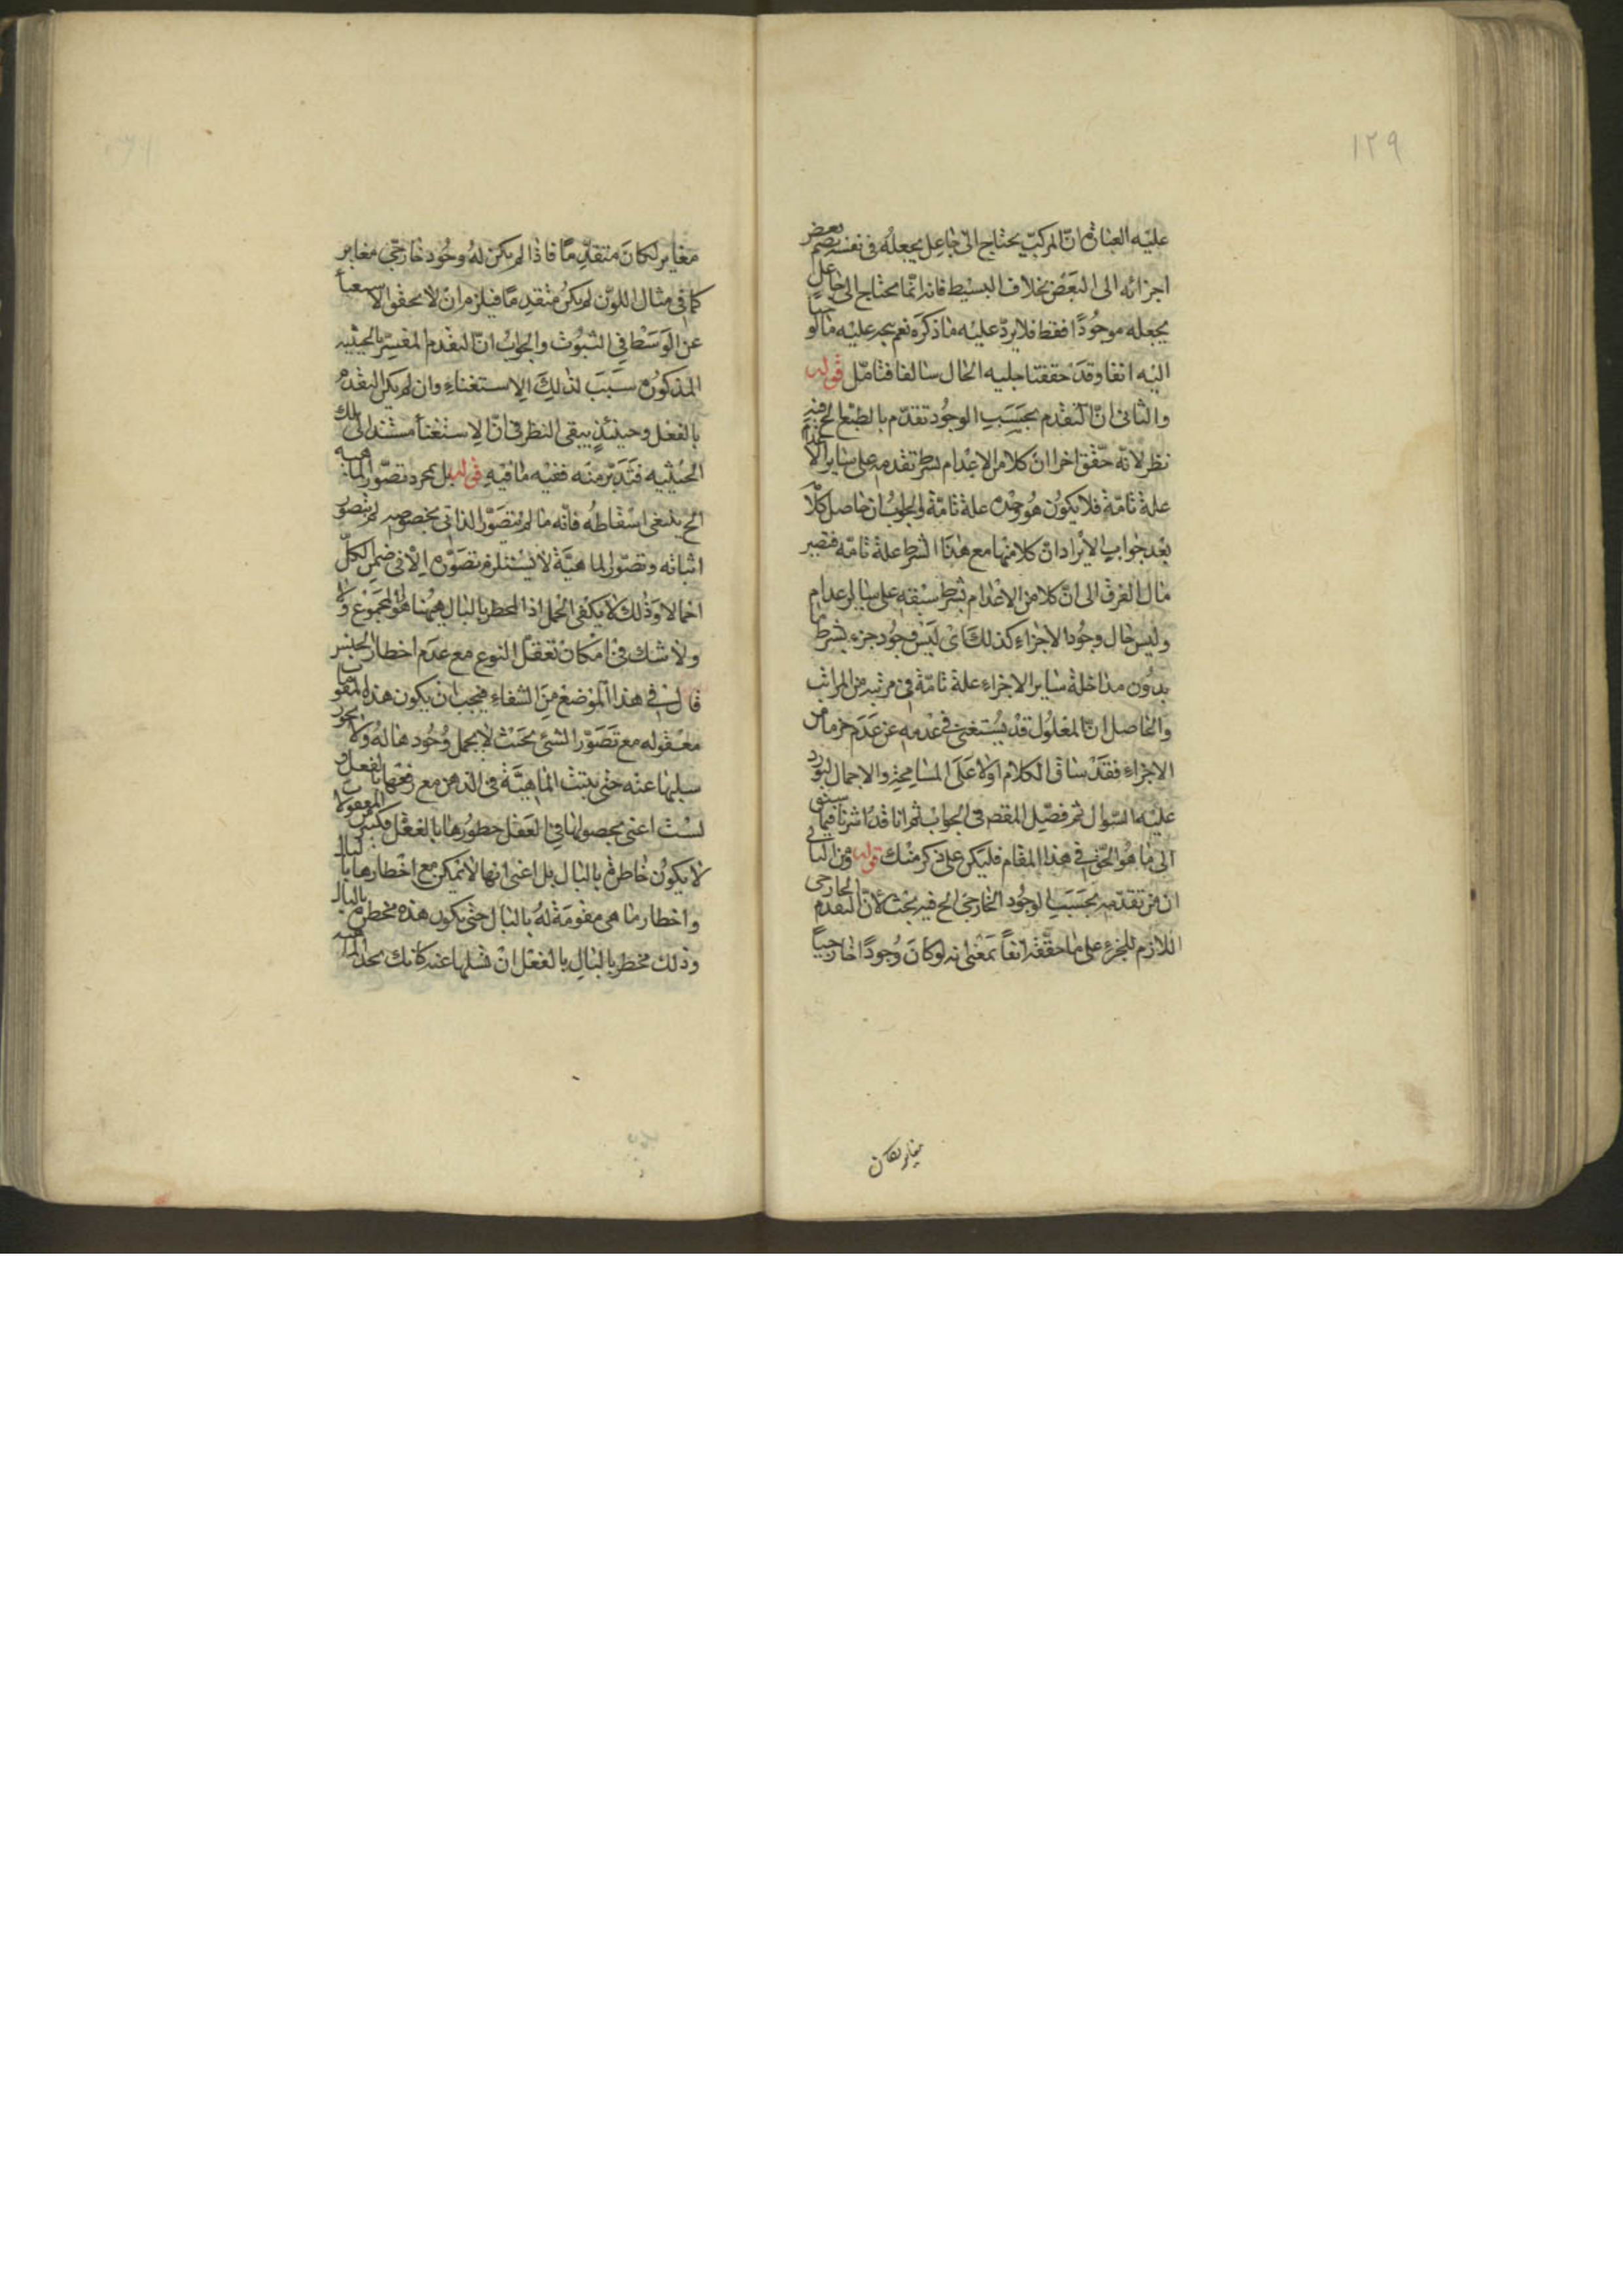 ١٢٩
عليه العبارة ان المركب يحتاج الى جاعل يجعله فى نفسه بضم بعض
اجزائه الى البعض بخلاف البسيط فانه انما محتاج الى جاعل
يجعله موجودًا فقط فلا يرد عليه ما ذكره نعم يجر عليه ما
اليه انفا وقد حققنا جليه الحال سالفا فتامّل قوله
والثانى انّ التقدم بحسب الوجود تقدّم بالطبع الخ فيه
نظر لانه حقّق اخرا ان كلا من الاعدام بشرط تقدمه على ساير الا
علة تامّة فلا يكون هو وحده علة تامّة والجواب ان حاصل كلا
بعد جواب الايراد ان كلا منها مع هذا الشرط علة تامّة فتصير
مال الفرق الى ان كلا من الاعدام بشرط سبقه على ساير الاعدام
وليس حال وجود الاجزاء كذلك اى ليس وجود جزء بشرط
بدون مداخلة ساير الاجزاء علة تامّة فى مرتبه من المراتب
والحاصل ان المعلول قد يستغنى فى عدمه عن عدم جزء ما من
الاجزاء فقد ساق الكلام اولا على المسامحة والاجمال ليورد
عليه السّوال ثم فصّل المقصد فى الجواب ثم انا قد اشرنا فيما سبق
الى ما هو الحّق فى هذا المقام فليكن على ذكر منك قوله ومن
ان من تقدّمه بحسب الوجود الخارجى الخ فيه بحث لأنّ التقدم الخارجى
اللازم للجزء على ما حققه انفاً بمعنى انه لو كان وجودًا خارجيا
مغاير لكان
مغاير لكان متقدّمًا فاذا لم يكن له وجود خارجى مغاير
كما فى مثال اللون لم يكن متقدمًا فيلزم ان لا يحقق الا
عن الوسط فى الثبوت والجواب ان التقدم المفسّر بالحيثيه
المذكورة سبب لذلك الاستغناء وان لم يكن التقدم
بالفعل وحينئذ يبقى النظر فى انّ الاستغناء مستند الى تلك
الحيثيه فتدبّر منه ففيه ما فيه قوله بل بمجرد تصّور الماهيه
الخ ينبغى اسقاطه فانّه ما لم يتصوّر الذاتى بخصوصه لم يتصور
اثباته وتصّور الماهيّة لا يستلزم تصوّره الّا فى ضمن الكلّ
اجمالا وذلك لا يكفى الحمل اذ المخطر بالبال ههنا هو المجموع
ولا شك فى امكان تعقل النوع مع عدم اخطار الجنس
قال فى هذا الموضع من الشفاء فيجب ان يكون هذه المقو
معقوله مع تصوّر الشئ بحيث لا يجهل وجودها له ولا يجوز
سلبها عنه حتى يثبت الماهيّة فى الذهن مع رفعها بالفعل و
لست اعنى بحصولها فى العقل خطورها بالفعل فكثير من المعقولات
لا يكون خاطرة بالبال بل اعنى انها لا يمكن مع اخطارها بالبال
واخطار ما هى مقومة له بالبال حتى يكون هذه مخطرة بالبال
وذلك مخطر بالبال بالفعل ان تسلبها عنه كانك تجد